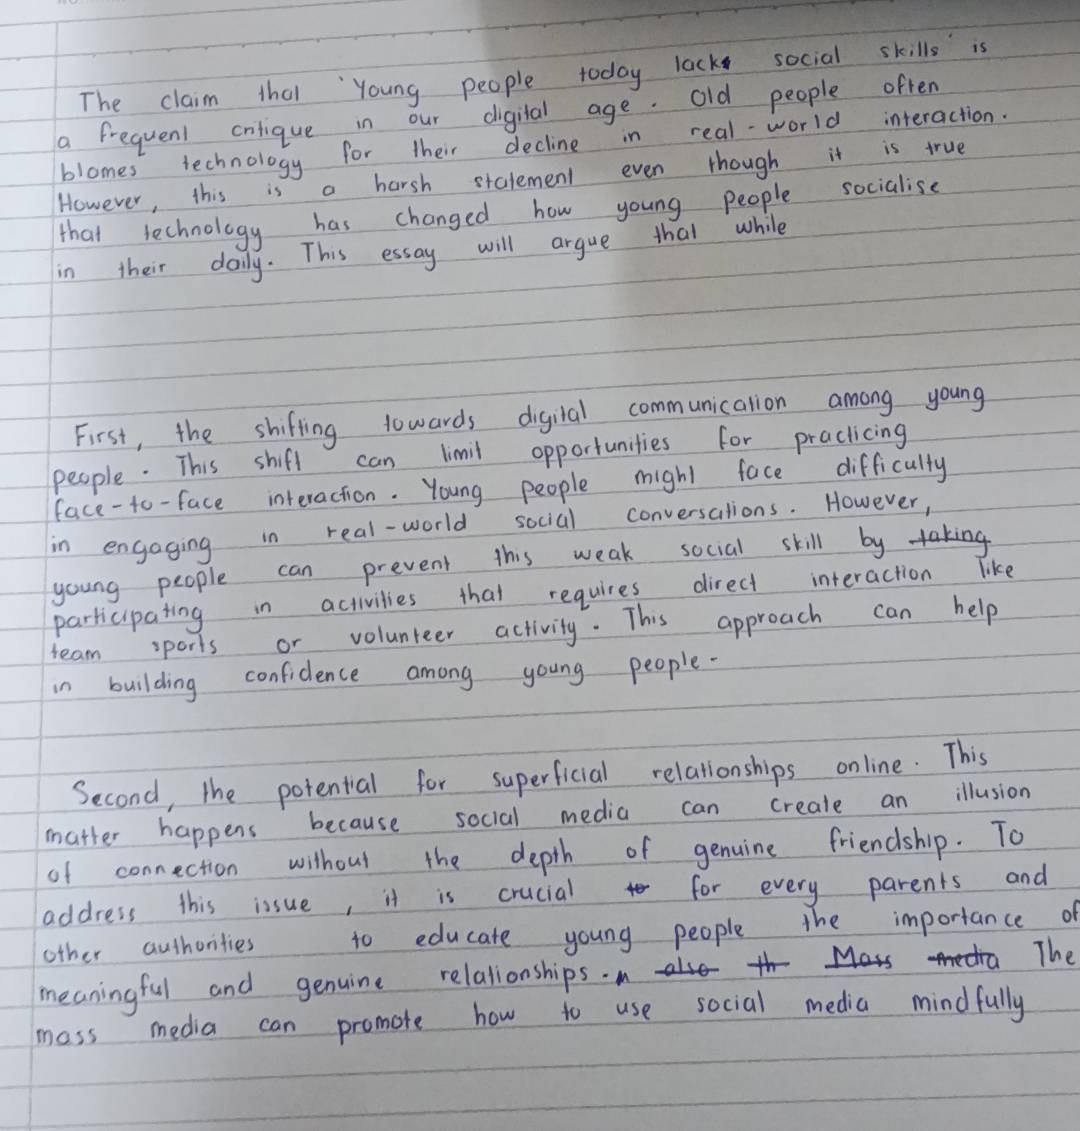 The claim that 'Young people today lack social skills' is
a frequent critique in our digital age. Old people often
blames technology for their decline in real-world interaction.
However, this is a harsh statement even though it is true
that technology has changed how young people socialise
in their daily. This essay will argue that while
First, the shifting towards digital communication among young
people. This shift can limit opportunities for practicing
face-to-face interaction. Young people might face difficulty
in engaging in real-world social conversations. However,
young people can prevent this weak social skill by taking
participating in activities that requires direct interaction like
team sports or volunteer activity. This approach can help
in building confidence among young people.
Second, the potential for superficial relationships online. This
matter happens because social media can create an illusion
of connection without the depth of genuine friendship. To
address this issue, it is crucial to for every parents and
other authorities to educate young people the importance of
meaningful and genuine relationships. also th Mass media The
mass media can promote how to use social media mindfully